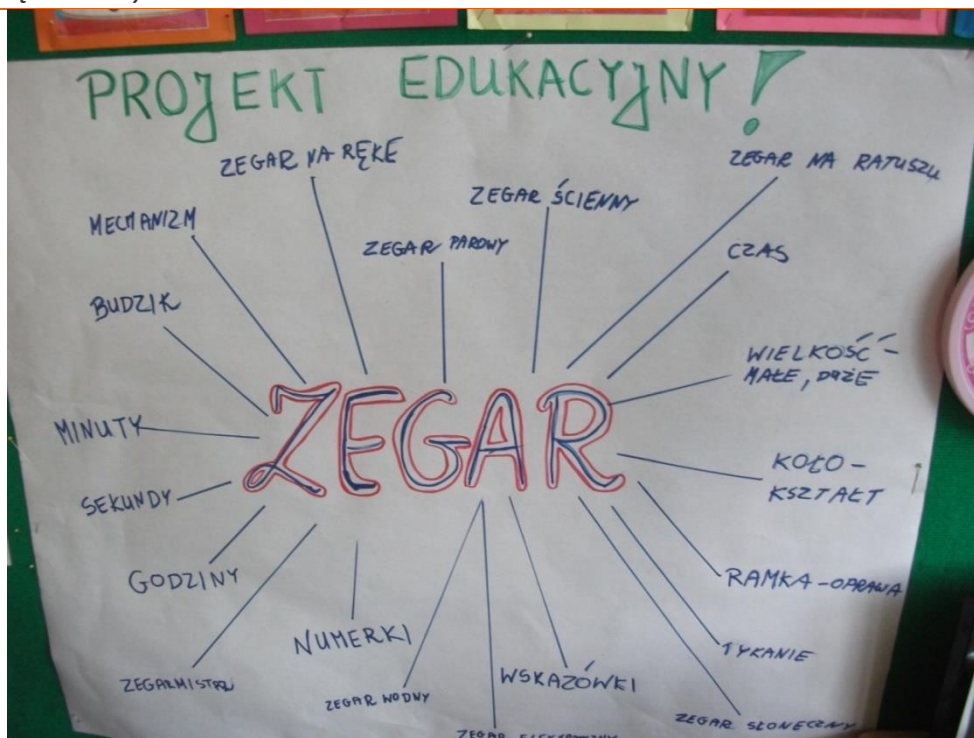 PROJEKT EDUKACYJNY!
ZEGAR NA RĘKE
ZEGAR NA RATUSZU
ZEGAR ŚCIENNY
MECHANIZM
ZEGAR PAROWY
CZAS
BUDZIK
WIELKOŚĆ -
MAŁE, DUŻE
ZEGAR
MINUTY
KOŁO -
KSZTAŁT
SEKUNDY
GODZINY
RAMKA - OPRAWA
NUMERKI
TYKANIE
ZEGARMISTRZ
ZEGAR WODNY
WSKAZÓWKI
ZEGAR SŁONECZNY
ZEGAR